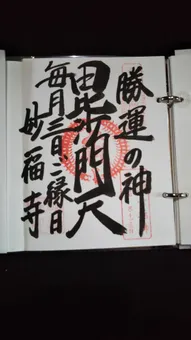 勝運の神
毘沙門天
毎月三日、ご縁日
妙福寺